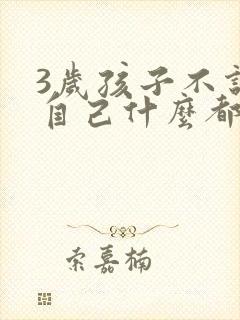 3歲孩子不
自己什麼都
索嘉楠